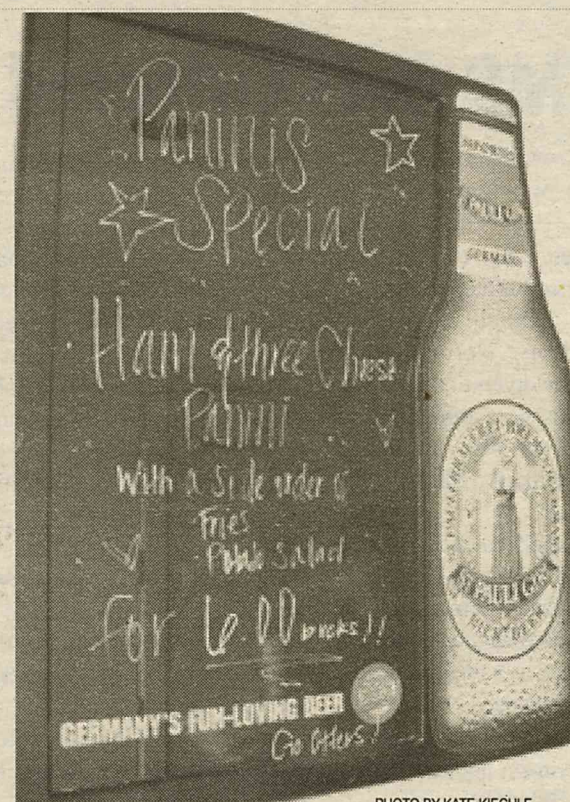 Paninis
Special
Ham & three Cheese
Panini
With a side order of
Fries
Potato Salad
for 6.00 bucks!!
GERMANY'S FUN-LOVING BEER
Go Otters!
PAULI
GERMANY
ST. PAULI GIRL
BIER BEER
PHOTO BY KATE KIECHLE